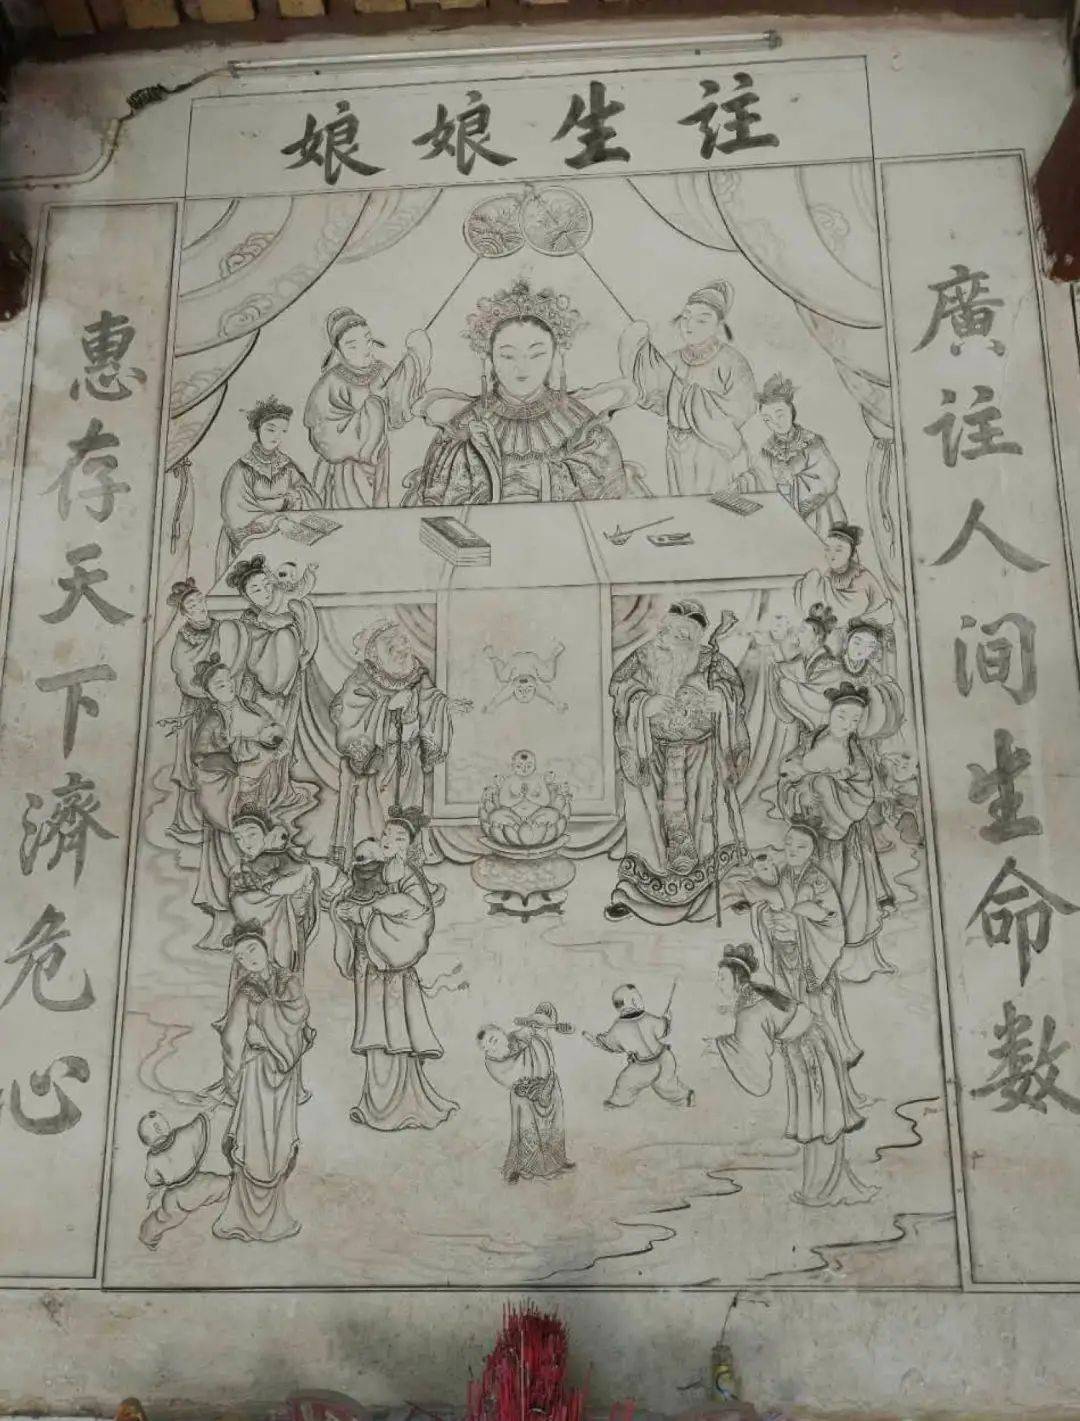 註生娘娘
廣註人間生命数
惠存天下濟危心